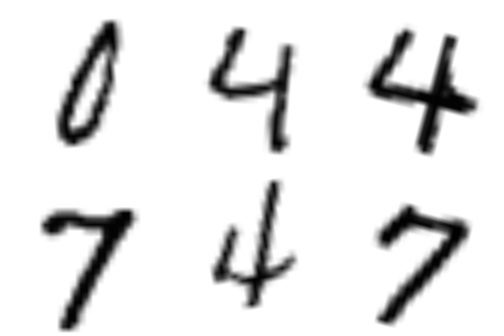 0 4 4
7 4 7